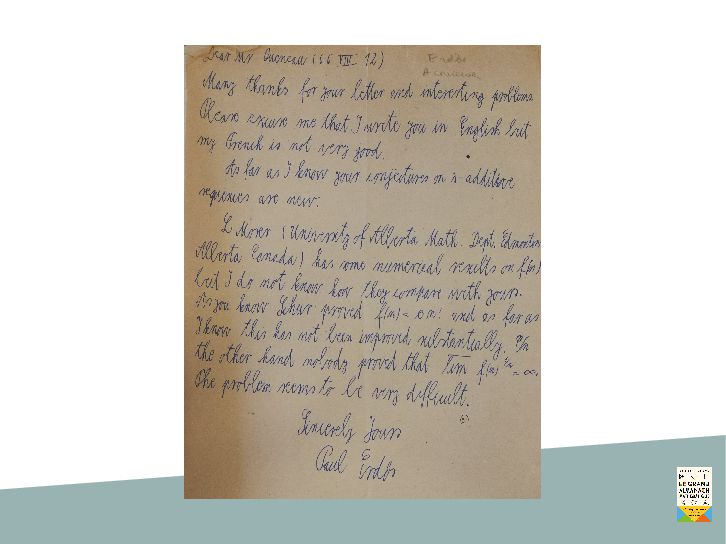 Dear Mr Queneau (66 VIII 12)
Erdős
A conserver
Many thanks for your letter and interesting problems
Please excuse me that I write you in English but
my French is not very good.
As far as I know your conjectures on s-additive
sequences are new.
L Moser (University of Alberta Math. Dept. Edmonton
Alberta Canada) has some numerical results on f(n)
but I do not know how they compare with yours.
As you know Schur proved f(n) < e n! and as far as
I know this has not been improved substantially. On
the other hand nobody proved that lim f(n)^1/n = ∞.
The problem seems to be very difficult.
Sincerely Yours
Paul Erdős
LE GRAND
ALMANACH